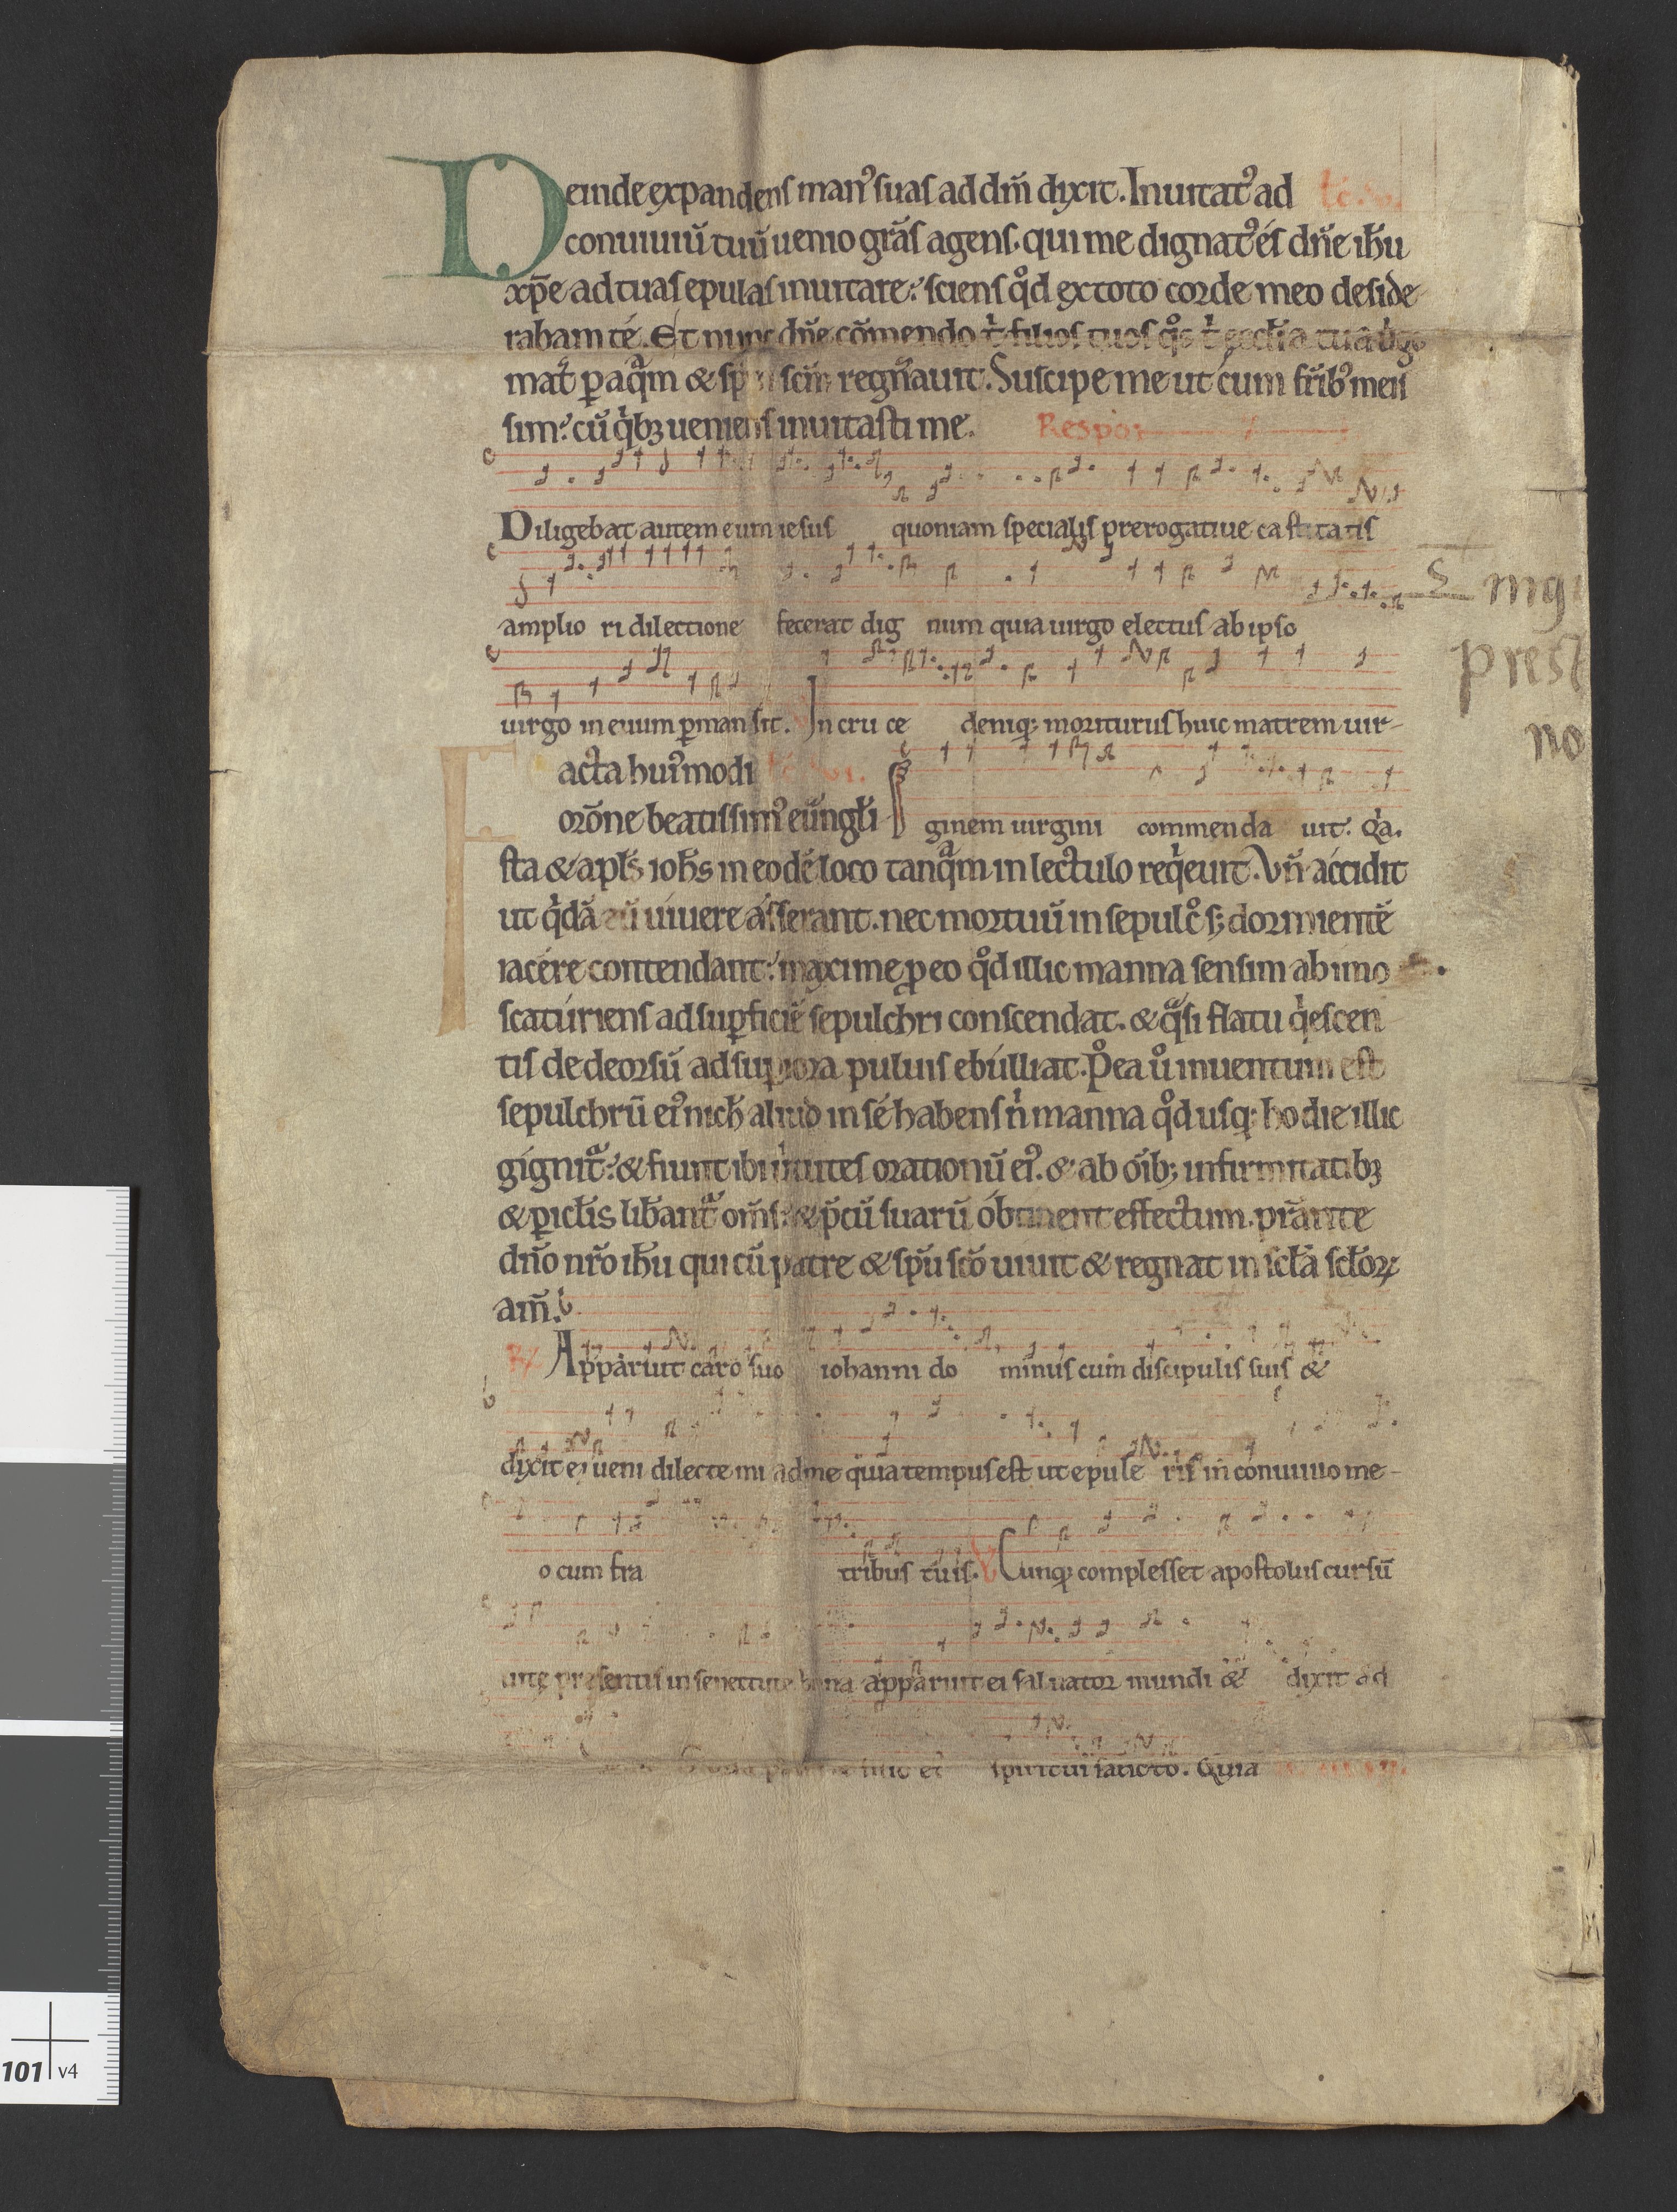 Deinde expandens man᷒ suas ad dm̄ dixit. Inuitat᷒ ad
conuiuiū tuū uenio gr̄as agens. qui me dignat᷒ és dn̄e ih̄u
xp̄e ad tuas epulas inuitare. sciens qd̊ ex toto corde meo deside
rabam té. Et nunc dn̄e cōmendo tͥ filios tuos qͦs tͥ eccl̄ia tua uͥgo
mat̄ p̄ aqͣm & sp̄m sc̄m regn̄auit. Suscipe me ut cum fr̄ib᷒ meis
sim. cū qͥbꝫ ueniens inuitasti me. Respōs
Diligebat autem eum iesus quoniam specialis prerogatiue castitatis
amplio ri dilectione fecerat dig num quia uirgo electus ab ipso
uirgo in euum ꝑmansit. In cru ce deniqꝫ moriturus huic matrem uir-
Facta hui᷒modi
orōne beatissim᷒ eūngl̄i
ginem uirgini commenda uit. Qͥa.
sta & apl̄s ioh̄s in eodē loco tanqͣm in lectulo reqͥeuit. Vn̄ accidit
ut qͥdā eū uiuere ásserant. nec mortuū in sepulcͦ sꝫ dormientē
iacére contendant. maxime ꝓ eo qd̊ illic manna sensim ab imo
scatúriens ad suꝑficiē sepulchri conscendat. & qͣsi flatu qͥescen
tis de deorsū ad supiora puluis ebúlliat. Pͦea uͦ inuentum est
sepulchrū ei᷒ nich̄ aliud in sé habens nͥ manna qd̊ usqꝫ hodie illic
gígnit᷑. & fiunt ibi uͥtutes orationū ei᷒. & ab oībꝫ infirmitatibꝫ
& ꝑicl̄is lib̄ant᷑ om̄s. & p̄cū suarū óbtinent effectum. pr̄ante
dn̄o nr̄o ih̄u qui cū patre & sp̄u sc̄o uiuit & regnat in scl̄a scl̄oꝝ
am̄.
℟ Apparuit caro suo iohanni do minus cum discipulis suis &
dixit ei ueni dilecte mi ad me quia tempus est ut epule ris in conuiuio me-
o cum fra tribus tuis. ℣ Cunqꝫ complesset apostolus cursū
uite presentis in senectute bona apparuit ei saluator mundi & dixit ad
Gloria patri & filio et spiritui sancto. Quia
prest
no